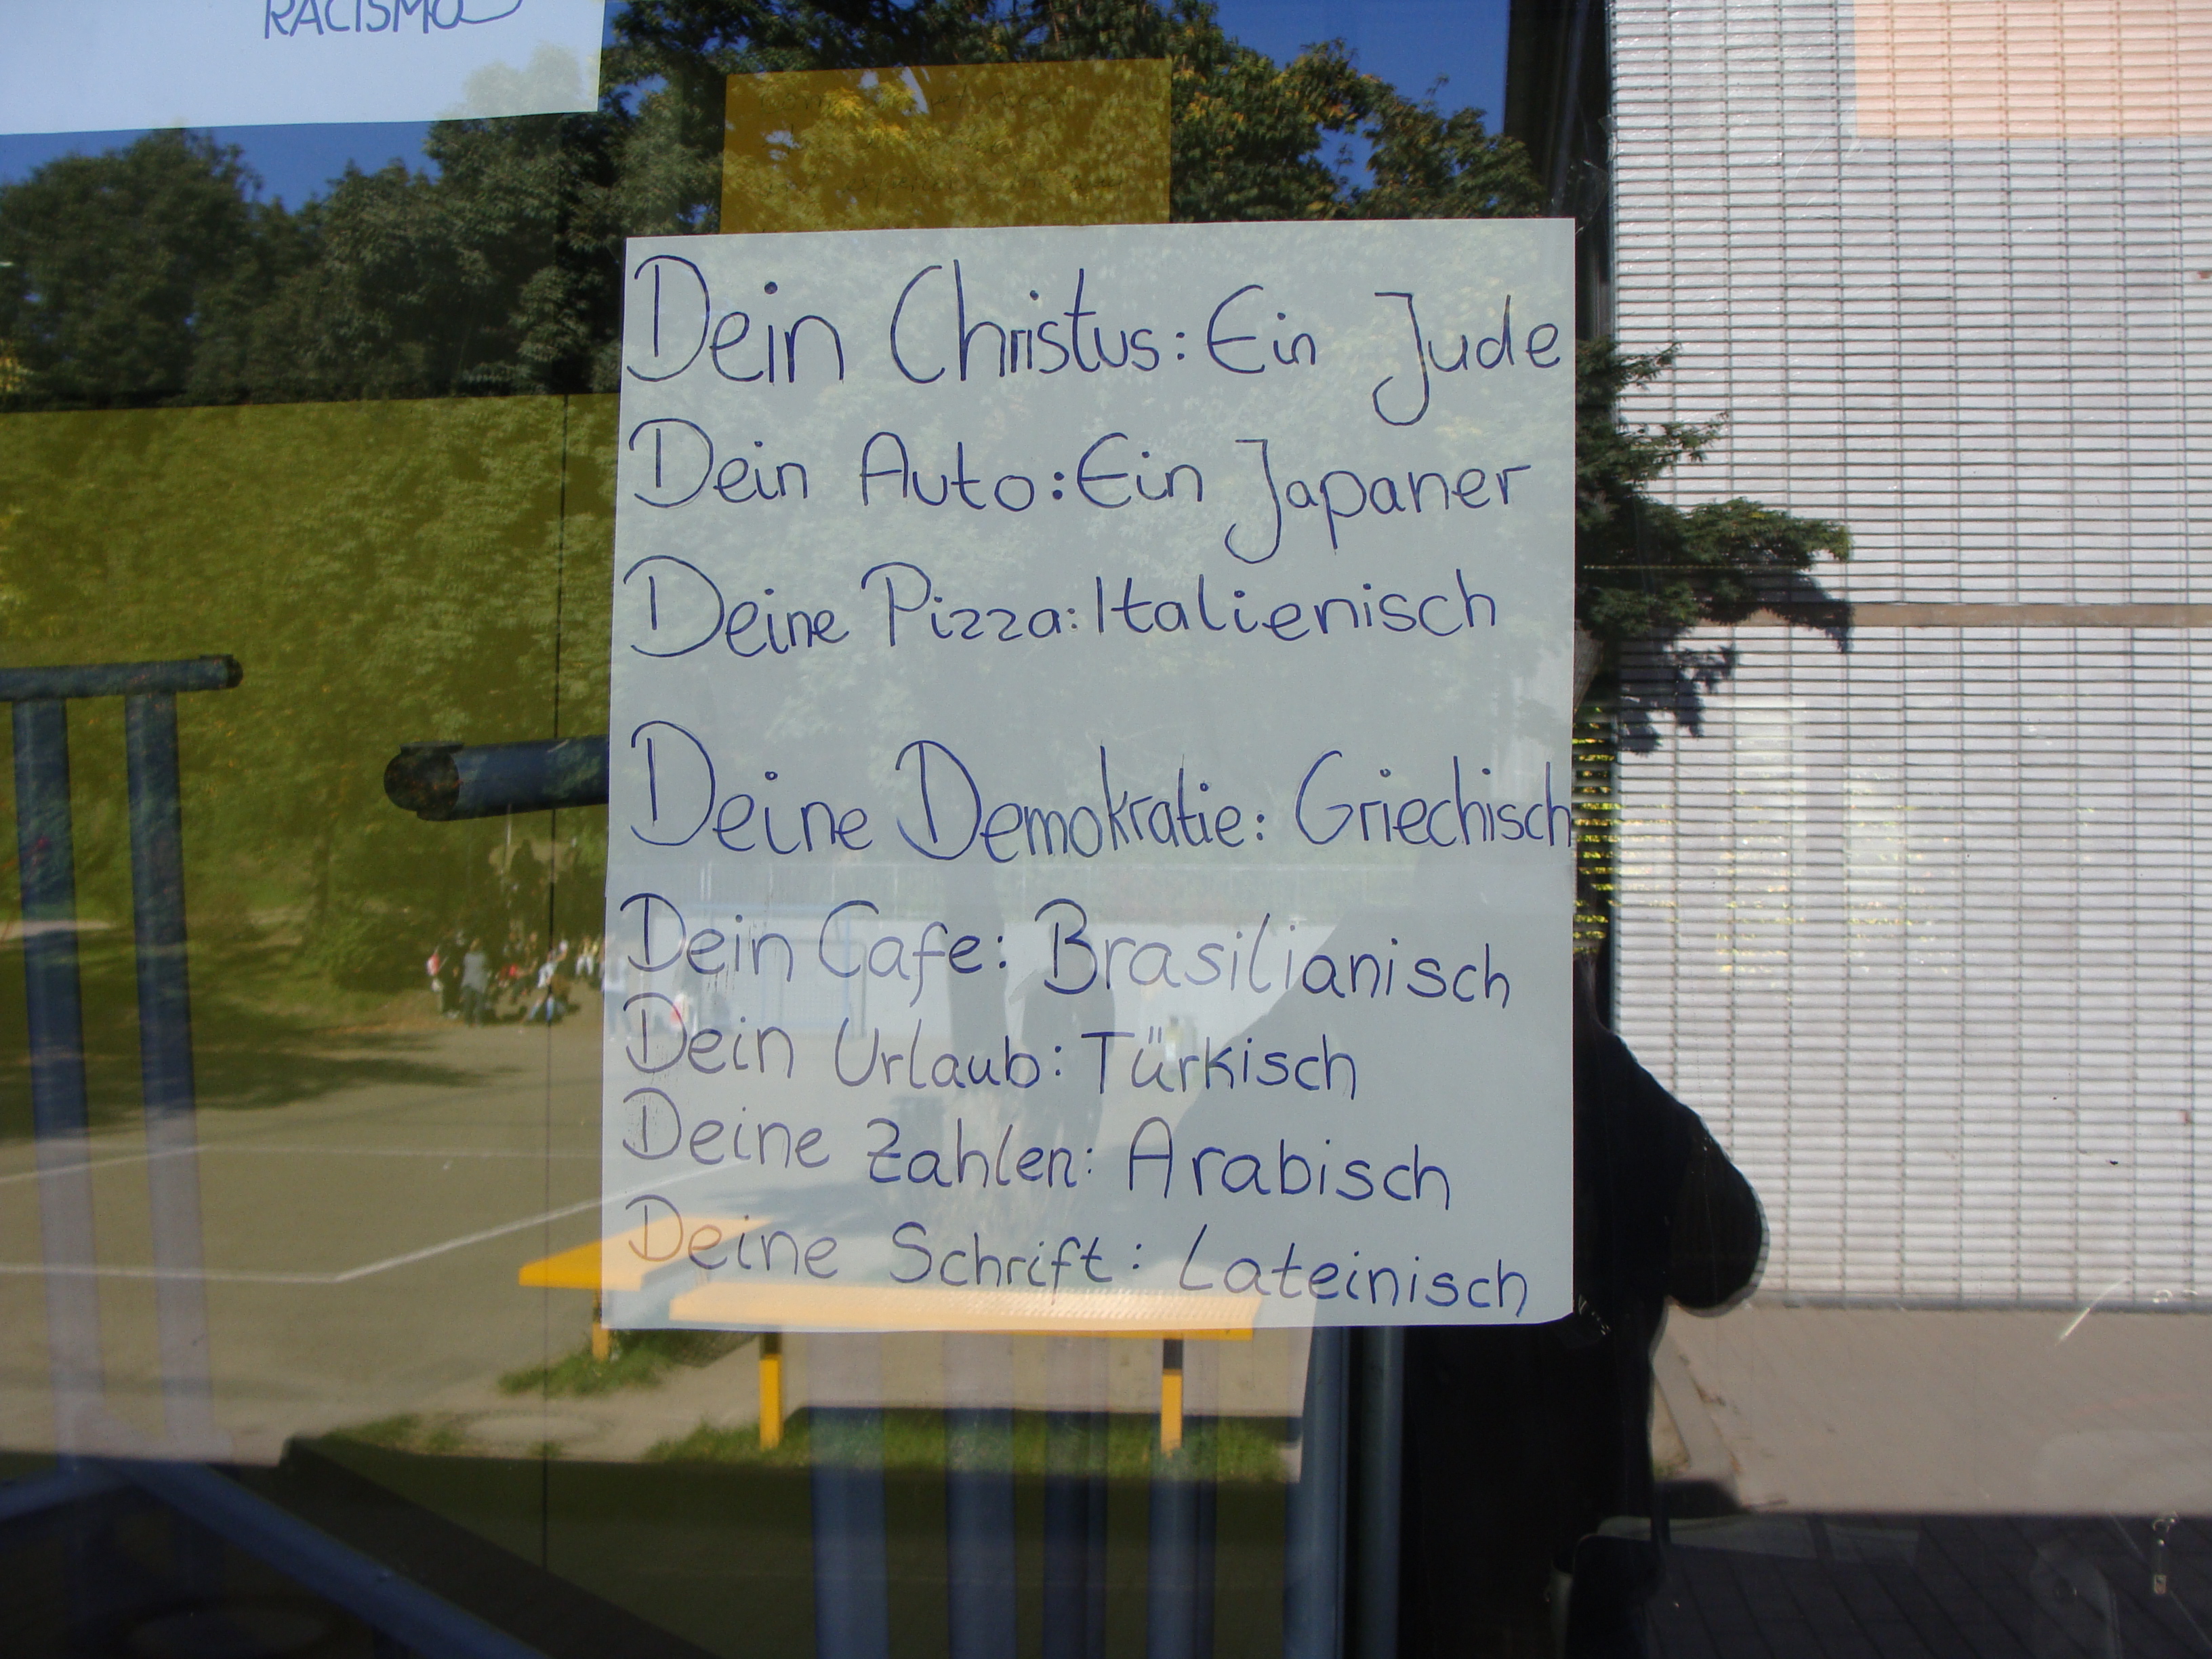 RACISMO
Dein Christus: Ein Jude
Dein Auto: Ein Japaner
Deine Pizza: Italienisch
Deine Demokratie: Griechisch
Dein Cafe: Brasilianisch
Dein Urlaub: Türkisch
Deine Zahlen: Arabisch
Deine Schrift: Lateinisch